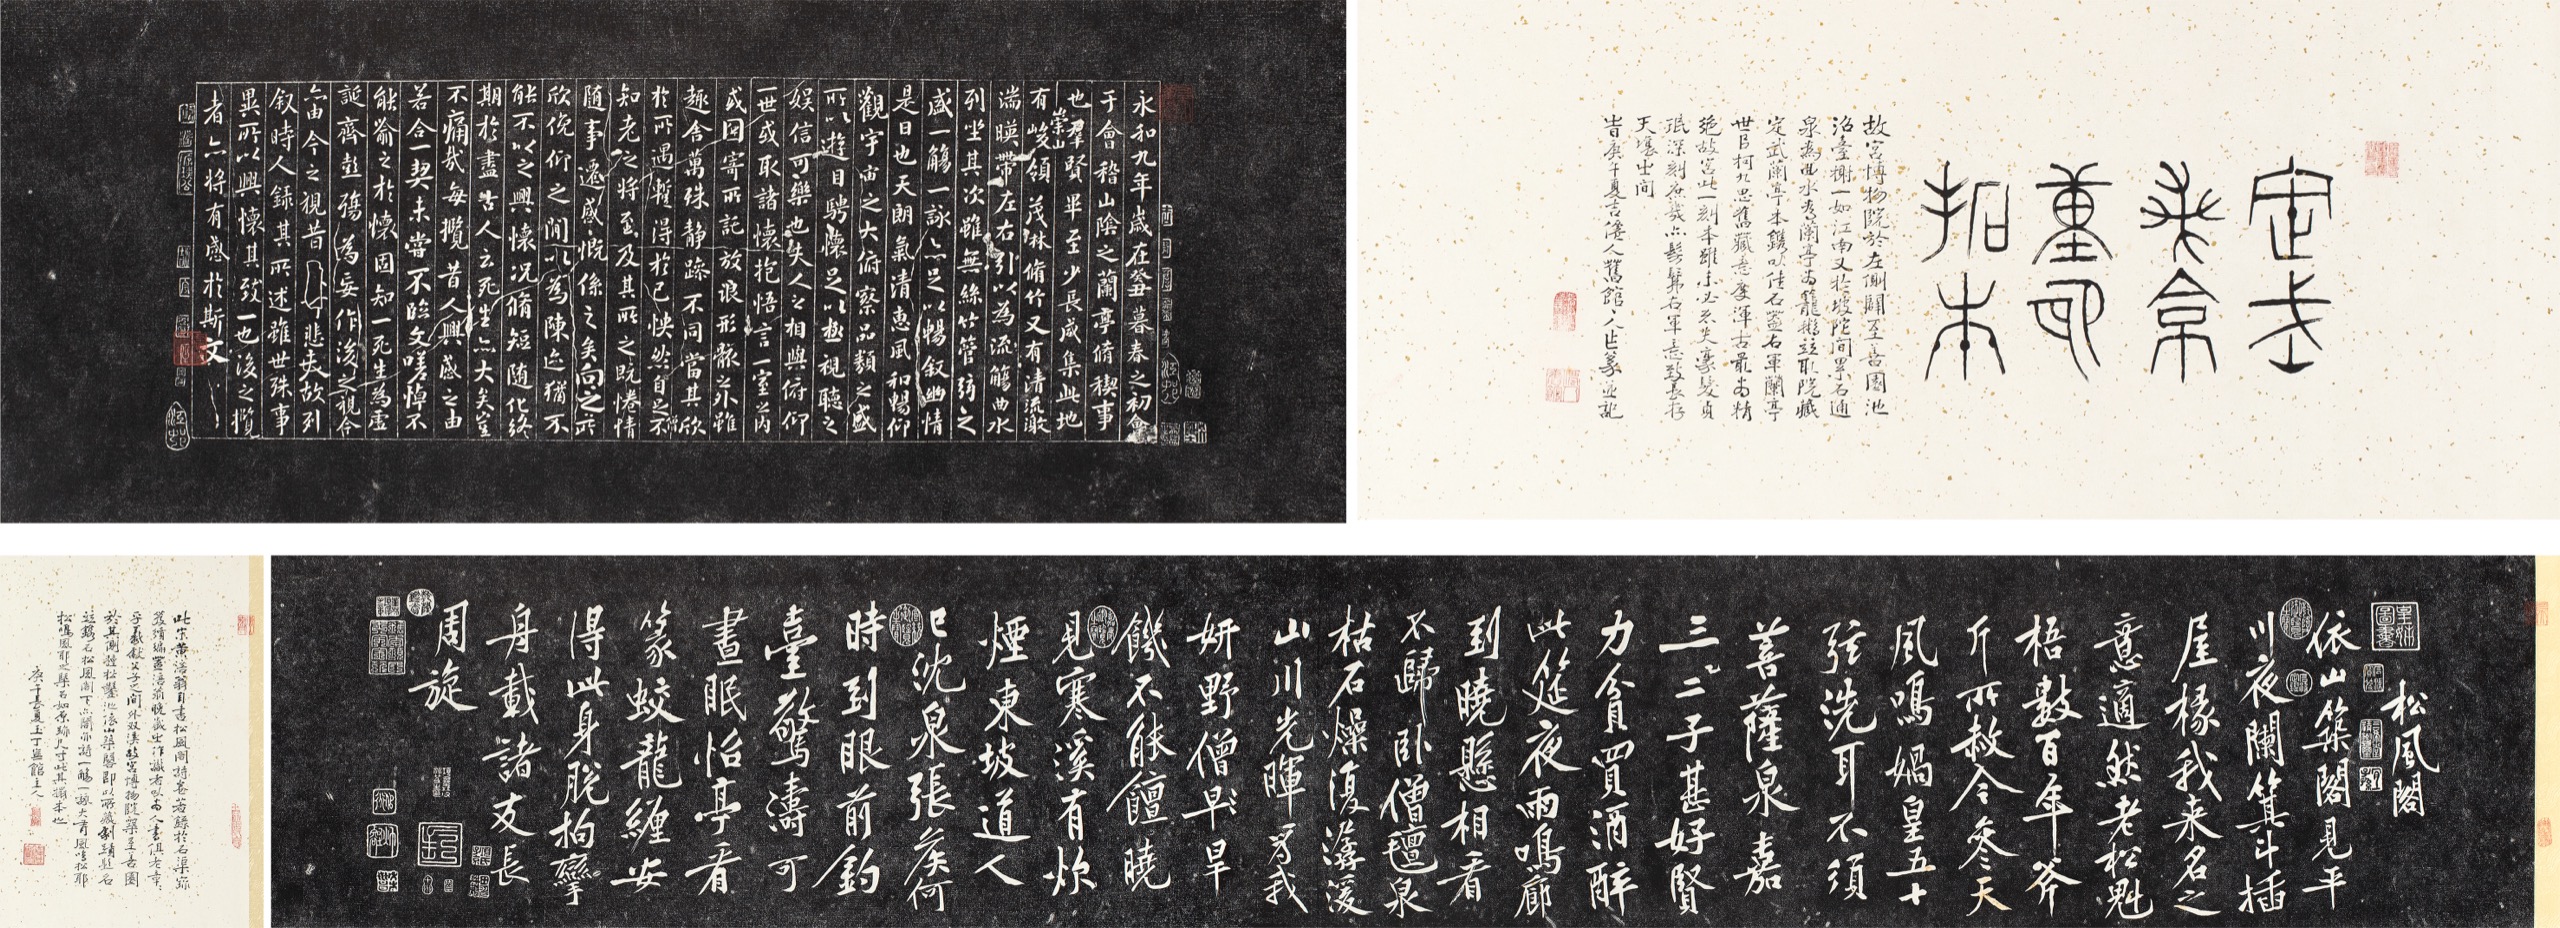 定武
重
拓本
故宮博物院於左側闢至善園池
沼臺榭一如江南又於坡陀間累石通
泉為曲水為蘭亭為籠鵝並取院藏
定武蘭亭本鐫以佳石蓋右軍蘭亭
世臣柯九思舊藏意度渾古最為精
絕故宮此一刻本雖未必無失豪髮貞
珉深刻庶幾亦髣髴右軍意致長存
天壤之間
旹庚午夏吉僊人舊館人作篆並記
永和九年歲在癸丑暮春之初會
于會稽山陰之蘭亭脩稧事
也羣賢畢至少長咸集此地
有崇山峻領茂林脩竹又有清流激
湍暎帶左右引以為流觴曲水
列坐其次雖無絲竹管弦之
盛一觴一詠亦足以暢叙幽情
是日也天朗氣清惠風和暢仰
觀宇宙之大俯察品類之盛
所以遊目騁懷足以極視聽之
娛信可樂也夫人之相與俯仰
一世或取諸懷抱悟言一室之內
或因寄所託放浪形骸之外雖
趣舍萬殊靜躁不同當其欣
於所遇暫得於己怏然自足不
知老之將至及其所之既惓情
隨事遷感慨係之矣向之所
欣俛仰之閒以為陳迹猶不
能不以之興懷況脩短隨化終
期於盡古人云死生亦大矣豈
不痛哉每攬昔人興感之由
若合一契未嘗不臨文嗟悼不
能喻之於懷固知一死生為虛
誕齊彭殤為妄作後之視今
亦由今之視昔悲夫故列
叙時人錄其所述雖世殊事
異所以興懷其致一也後之攬
者亦將有感於斯文
松風閣
依山築閣見平
川夜闌箕斗插
屋椽我來名之
意適然老松魁
梧數百年斧
斤所赦今參天
風鳴媧皇五十
弦洗耳不須
菩薩泉嘉
三二子甚好賢
力貧買酒醉
此筵夜雨鳴廊
到曉懸相看
不歸臥僧氈泉
枯石燥復潺湲
山川光暉為我
妍野僧早旱
饑不能饘曉
見寒溪有炊
煙東坡道人
已沈泉張侯何
時到眼前釣
臺驚濤可
晝眠怡亭看
篆蛟龍纏安
得此身脫拘攣
舟載諸友長
周旋
此宋黃涪翁自書松風閣詩卷著錄於石渠寶
笈續編蓋涪翁晚歲之作識者以為人書俱老章
乎羲獻父子之間外双溪故宮博物院築至善園
於其側種松鑿池依山築閣即以所藏劇蹟題名
並鐫石松風閣下亦閣亦詩一觴一詠大有風吟松耶
松鳴風耶之槩石如原跡尺寸此其搨本也
庚午長夏玉丁寧館主人